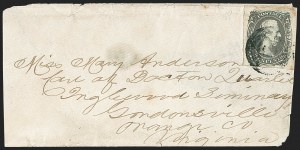 Miss Mary Anderson
Care of Doctor
Inglewood Seminary
Gordonsville
Orange Co
Virginia